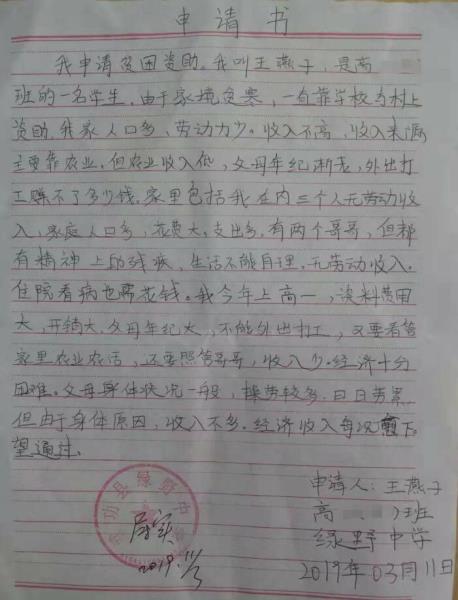 申请书
我申请贫困资助。我叫王燕子，是高
班的一名学生。由于家境贫寒，一直靠学校与村上
资助。我家人口多，劳动力少。收入不高，收入来源
主要靠农业，但农业收入低，父母年纪渐老，外出打
工赚不了多少钱。家里包括我在内三个人无劳动收
入，家庭人口多，花费大，支出多，有两个哥哥，但都
有精神上的残疾，生活不能自理，无劳动收入。
住院看病也需花钱。我今年上高一，资料费用
大，开销大，父母年纪大，不能外出打工，又要看管
家里农业农活，还要照管哥哥，收入少。经济十分
困难。父母身体状况一般，操劳较多，日日劳累，
但由于身体原因，收入不多。经济收入每况愈下
望通过。
申请人：王燕子
高 班
绿野中学
2019年03月11日
功县绿野中
属实
2019.11/3